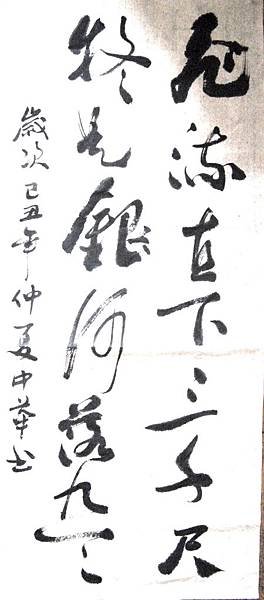 飛流直下三千尺
疑是銀河落九天
歲次己丑年仲夏中華书